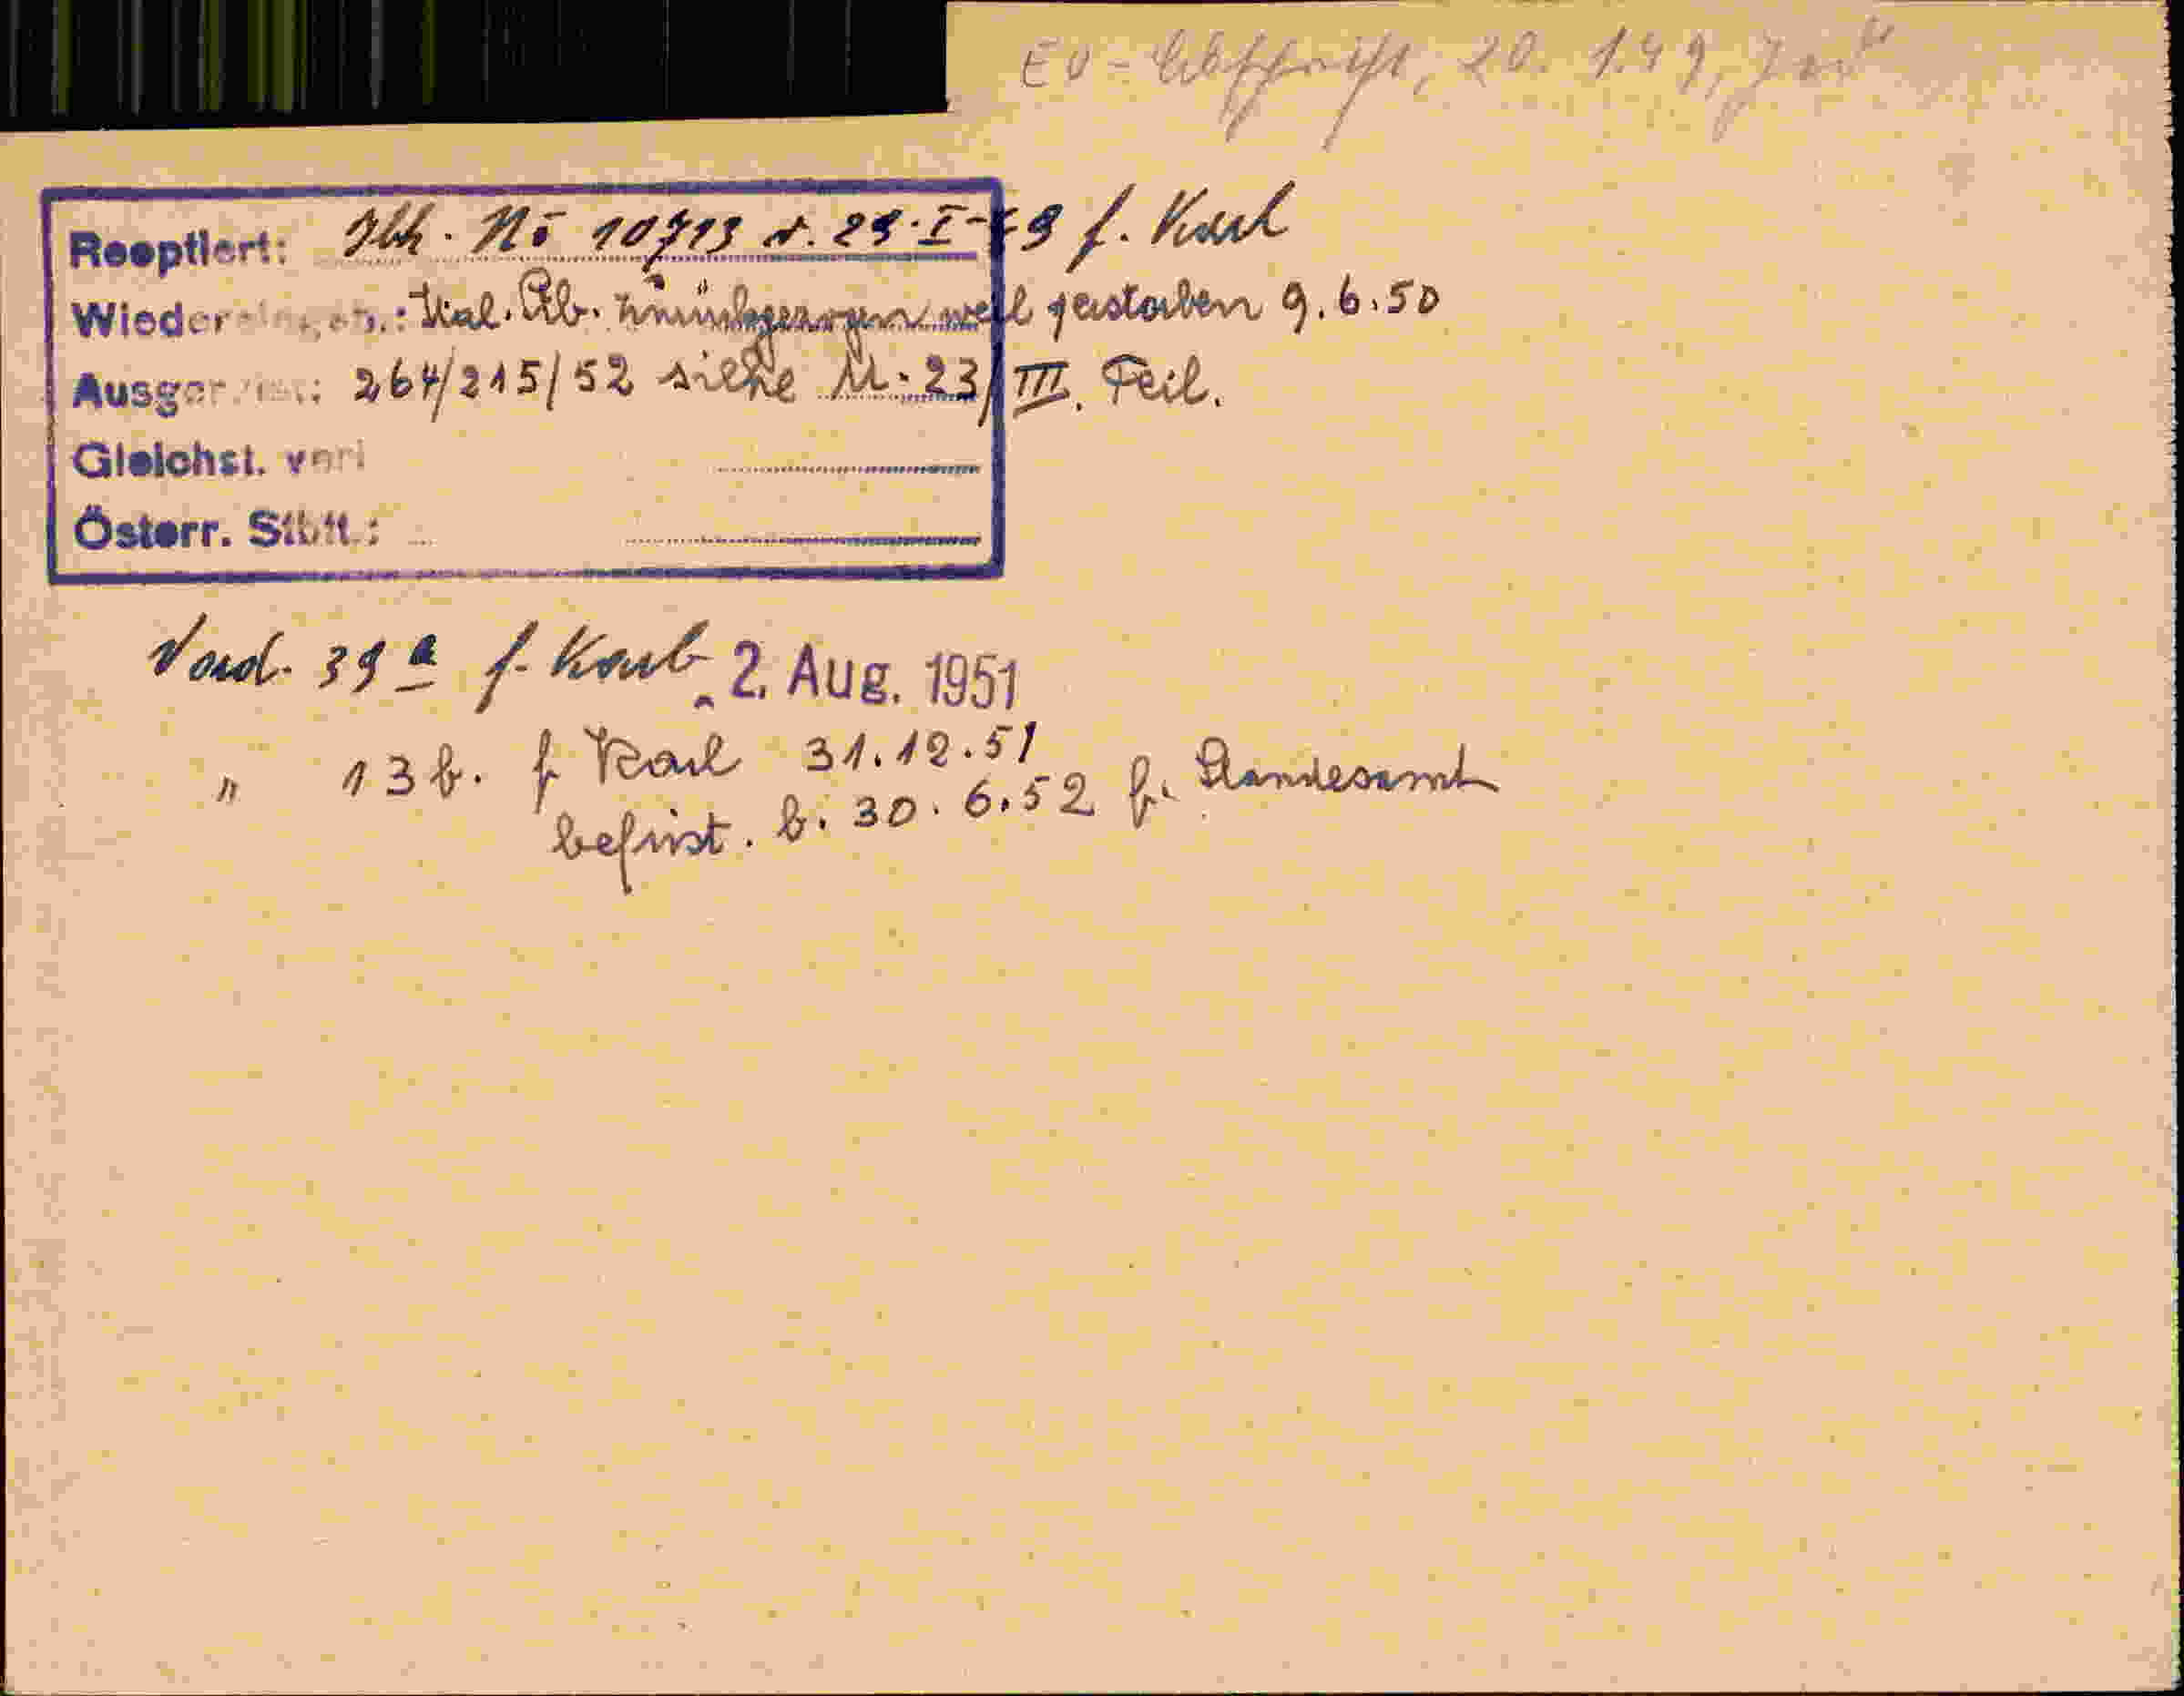 EV-Abschrift, 20. 1.49,
Reoptiert: No 10713 v. 29.I-49 f. Karl
Wiedereingeb.: Ital. Stb. zurückgezogen weil gestorben 9.6.50
264/215/52 siehe M-23/III. Teil.
Gleichst. verl
Österr. Stbtt.:
Vord. 39 a f. Karl 2. Aug. 1951
" 13 b. f Karl 31.12.51
befrist. b. 30.6.52 f. Standesamt